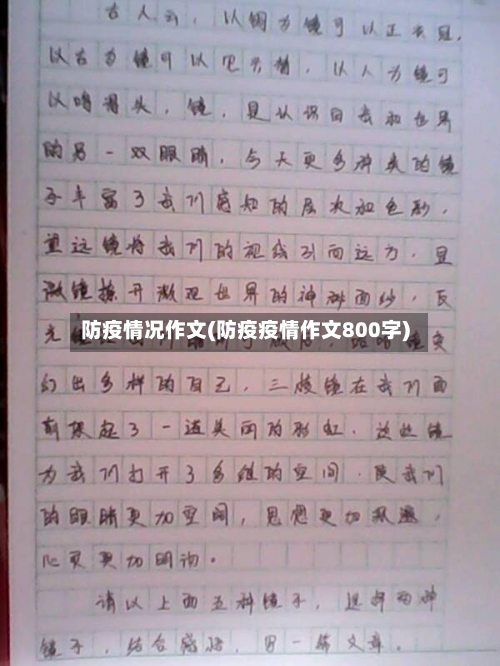 古人云，以铜为镜可以正衣冠，
以古为镜可以见兴替，以人为镜可
以明得失，镜，是认识自我和世界
的另一双眼睛，今天更多种类的镜
子丰富了我们感知的层次和色彩，
望远镜将我们的视线引向远方，显
微镜撩开微观世界的神秘面纱，反
光镜
防疫情况作文(防疫疫情作文800字)
幻出多样的自己，三棱镜在我们面
前架起了一道美丽的彩虹．这些镜
为我们打开了多维的空间．使我们
的眼睛更加空阔，思想更加
心灵更加明彻。
请以上面五种镜子，选择两种
镜子，结合感悟，写一篇文章。